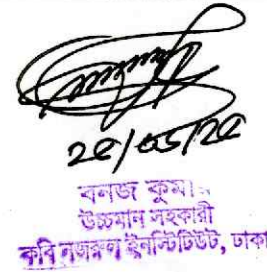 ২৫/০৫/২৫
বনজ কুমার
উচ্চমান সহকারী
কবি নজরুল ইনস্টিটিউট, ঢাকা